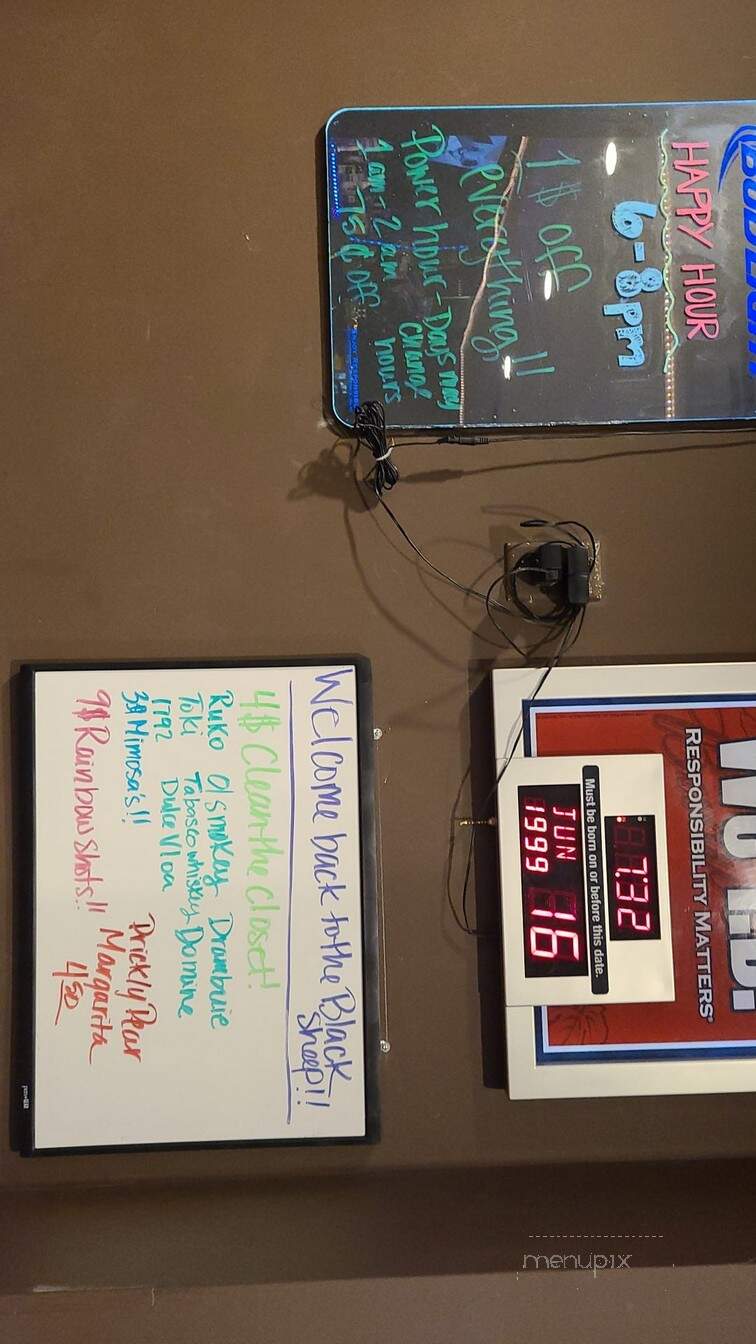 HAPPY HOUR
6-8pm
1$ off
everything!!
Power hour - Days may
change
1am - 2am hours
75¢ off
RESPONSIBILITY MATTERS
7:32
Must be born on or before this date.
JUN 16
1999
Welcome back to the Black
Sheep!!
4$ Clean the Closet!
Ruko O/smokey Drambuie
Toki Tabasco whiskey Domaine
1792 Dulce Vida
3$ Mimosa's!!
9$ Rainbow shots!!
Prickly Pear
Margarita
4.50
menupix